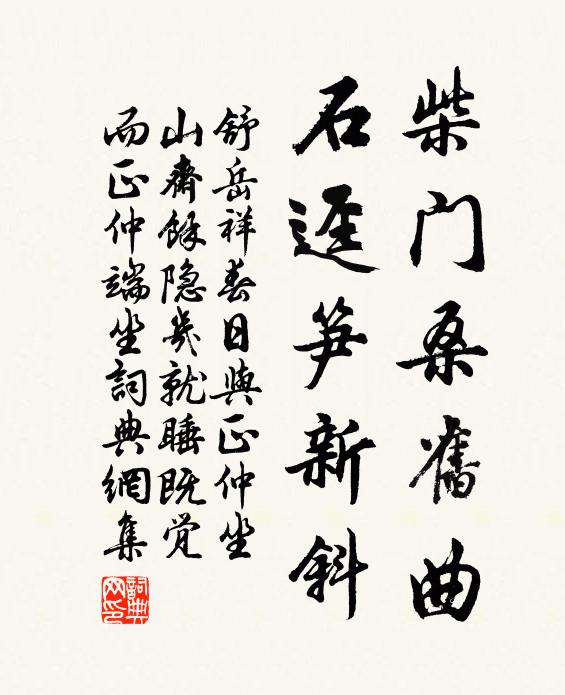 柴门桑舊曲
石迳笋新斜
舒岳祥春日與正仲坐
山齋餘隐几就睡既觉
而正仲端坐詞典網集
詞典
网印